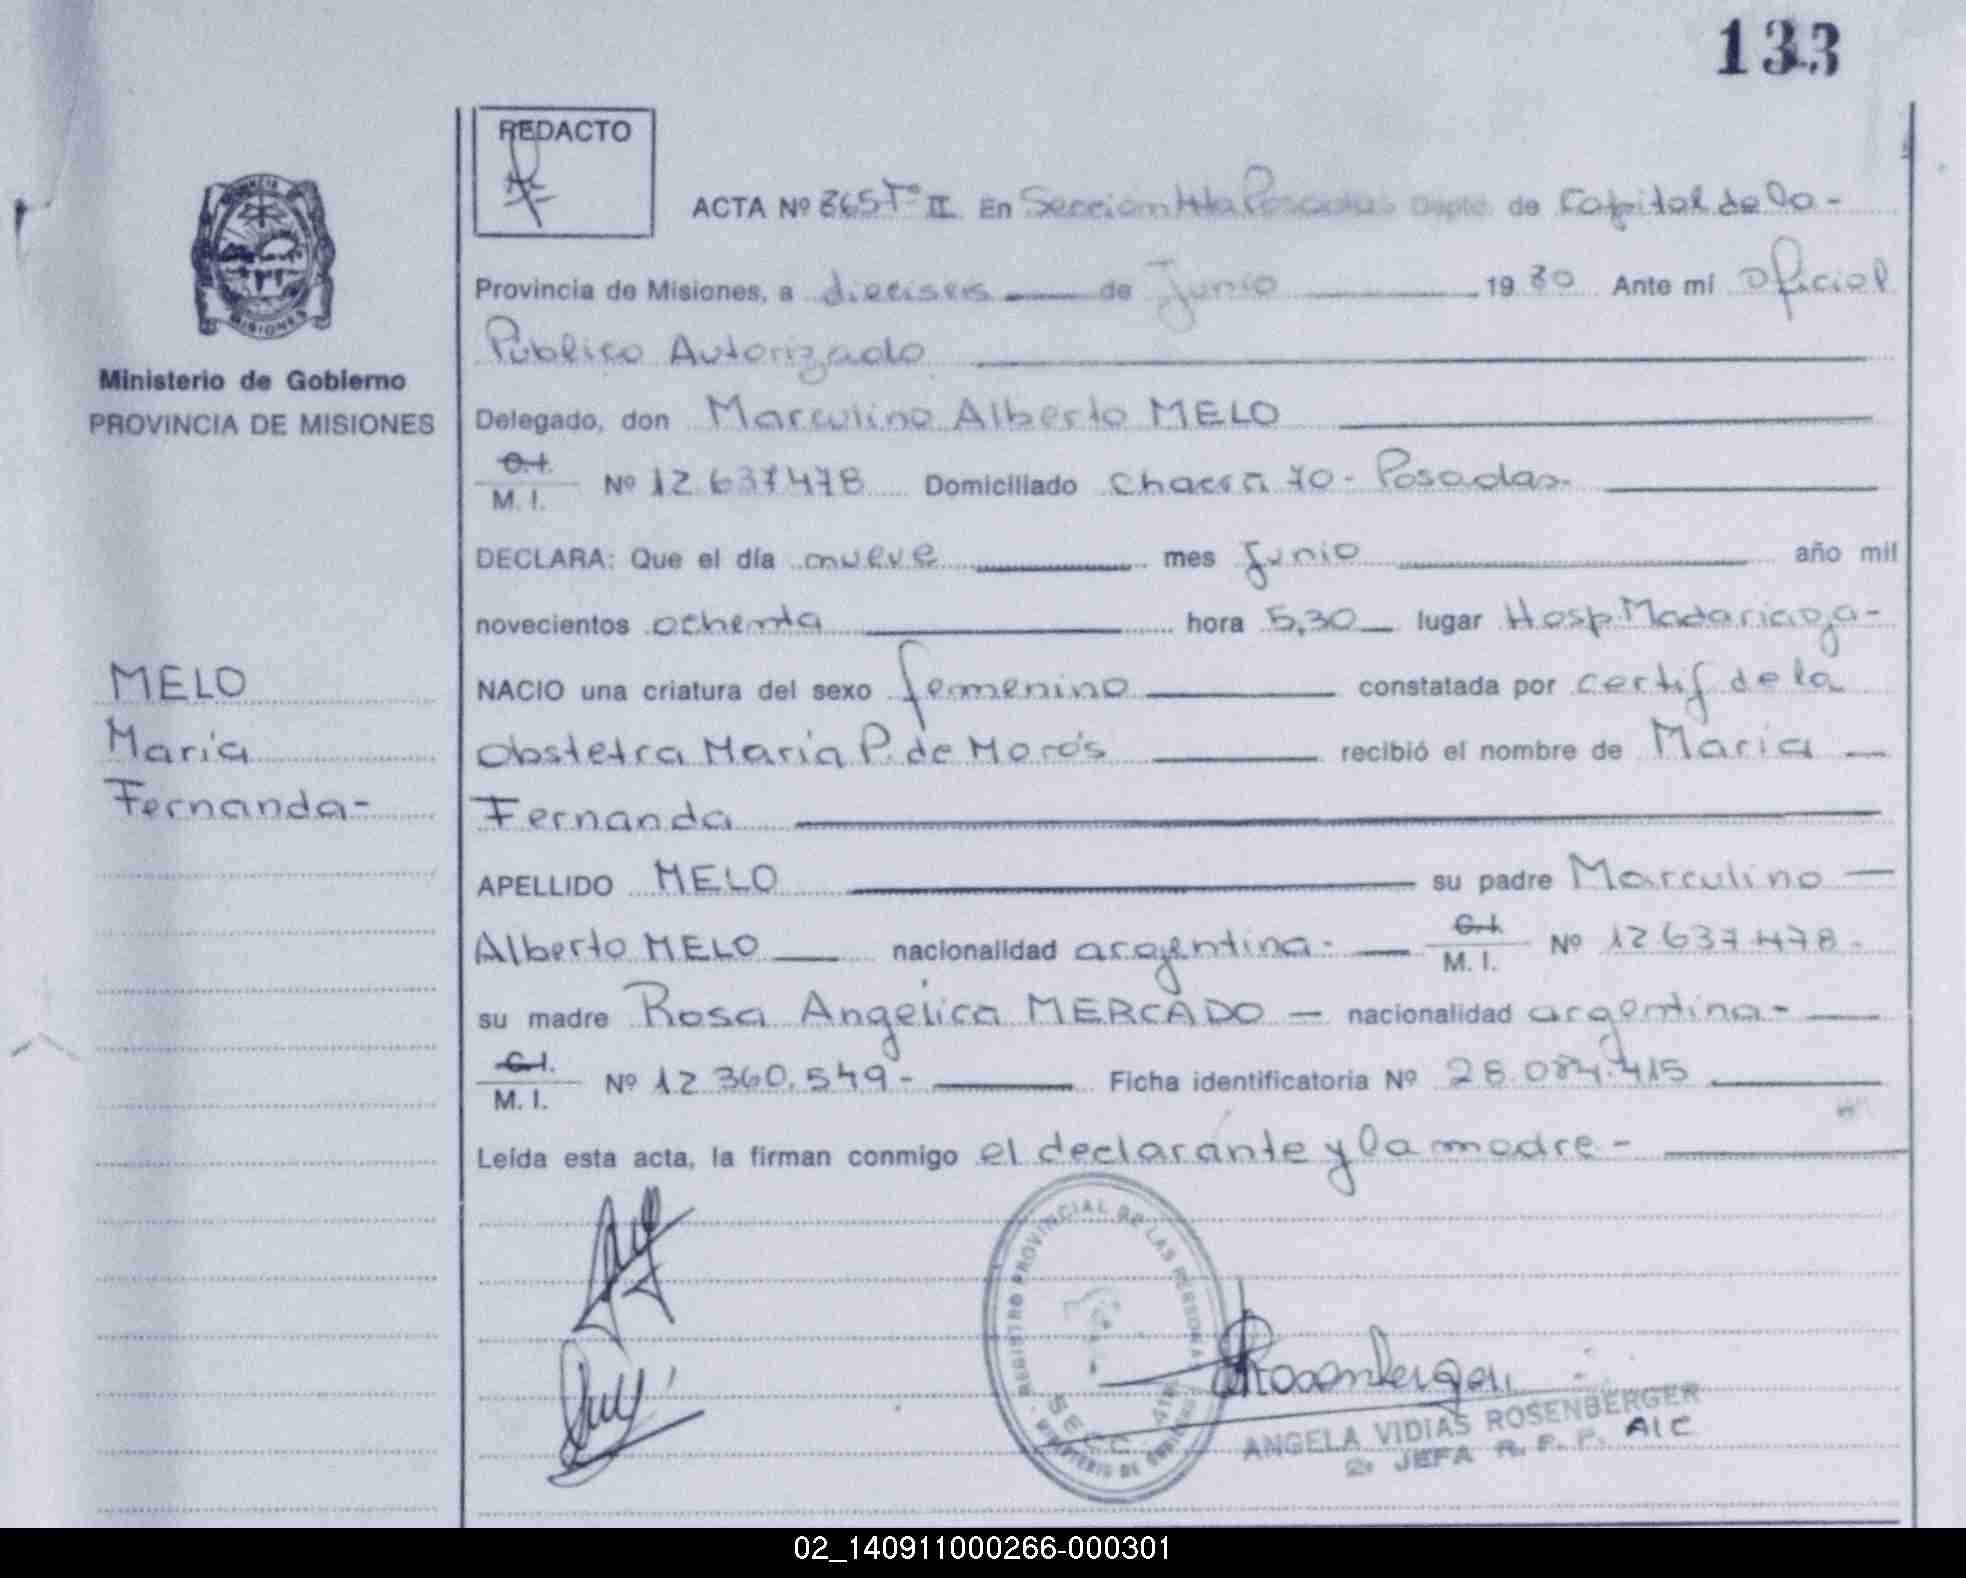 133
REDACTO
ACTA Nº 865 Tº II En Sección 4ta Posadas Dpto. de Capital de la -
Provincia de Misiones, a dieciseis de Junio 19 80 Ante mí Oficial
Público Autorizado
Delegado, don Marculino Alberto MELO
C.I. M. I. Nº 12 637 478 Domiciliado Chacra 70 - Posadas -
DECLARA: Que el día nueve mes Junio año mil
novecientos ochenta hora 5,30 lugar Hosp. Madariaga -
NACIO una criatura del sexo femenino constatada por certif de la
Obstetra Maria P. de Moros recibió el nombre de Maria
Fernanda
APELLIDO MELO su padre Marculino
Alberto MELO nacionalidad argentina - C.I. M. I. Nº 12 637 478 -
su madre Rosa Angélica MERCADO nacionalidad argentina -
C.I. M. I. Nº 12 360.549 - Ficha identificatoria Nº 28.084.415
Leída esta acta, la firman conmigo el declarante y la madre -
PROVINCIA DE
MISIONES
Ministerio de Gobierno
PROVINCIA DE MISIONES
MELO
María
Fernanda -
REGISTRO PROVINCIAL DE LAS PERSONAS
SECC. 4ta
MINISTERIO DE GOBIERNO
Rosenberger
ANGELA VIDIAS ROSENBERGER
2º JEFA R. P. P. A/C
02_140911000266-000301